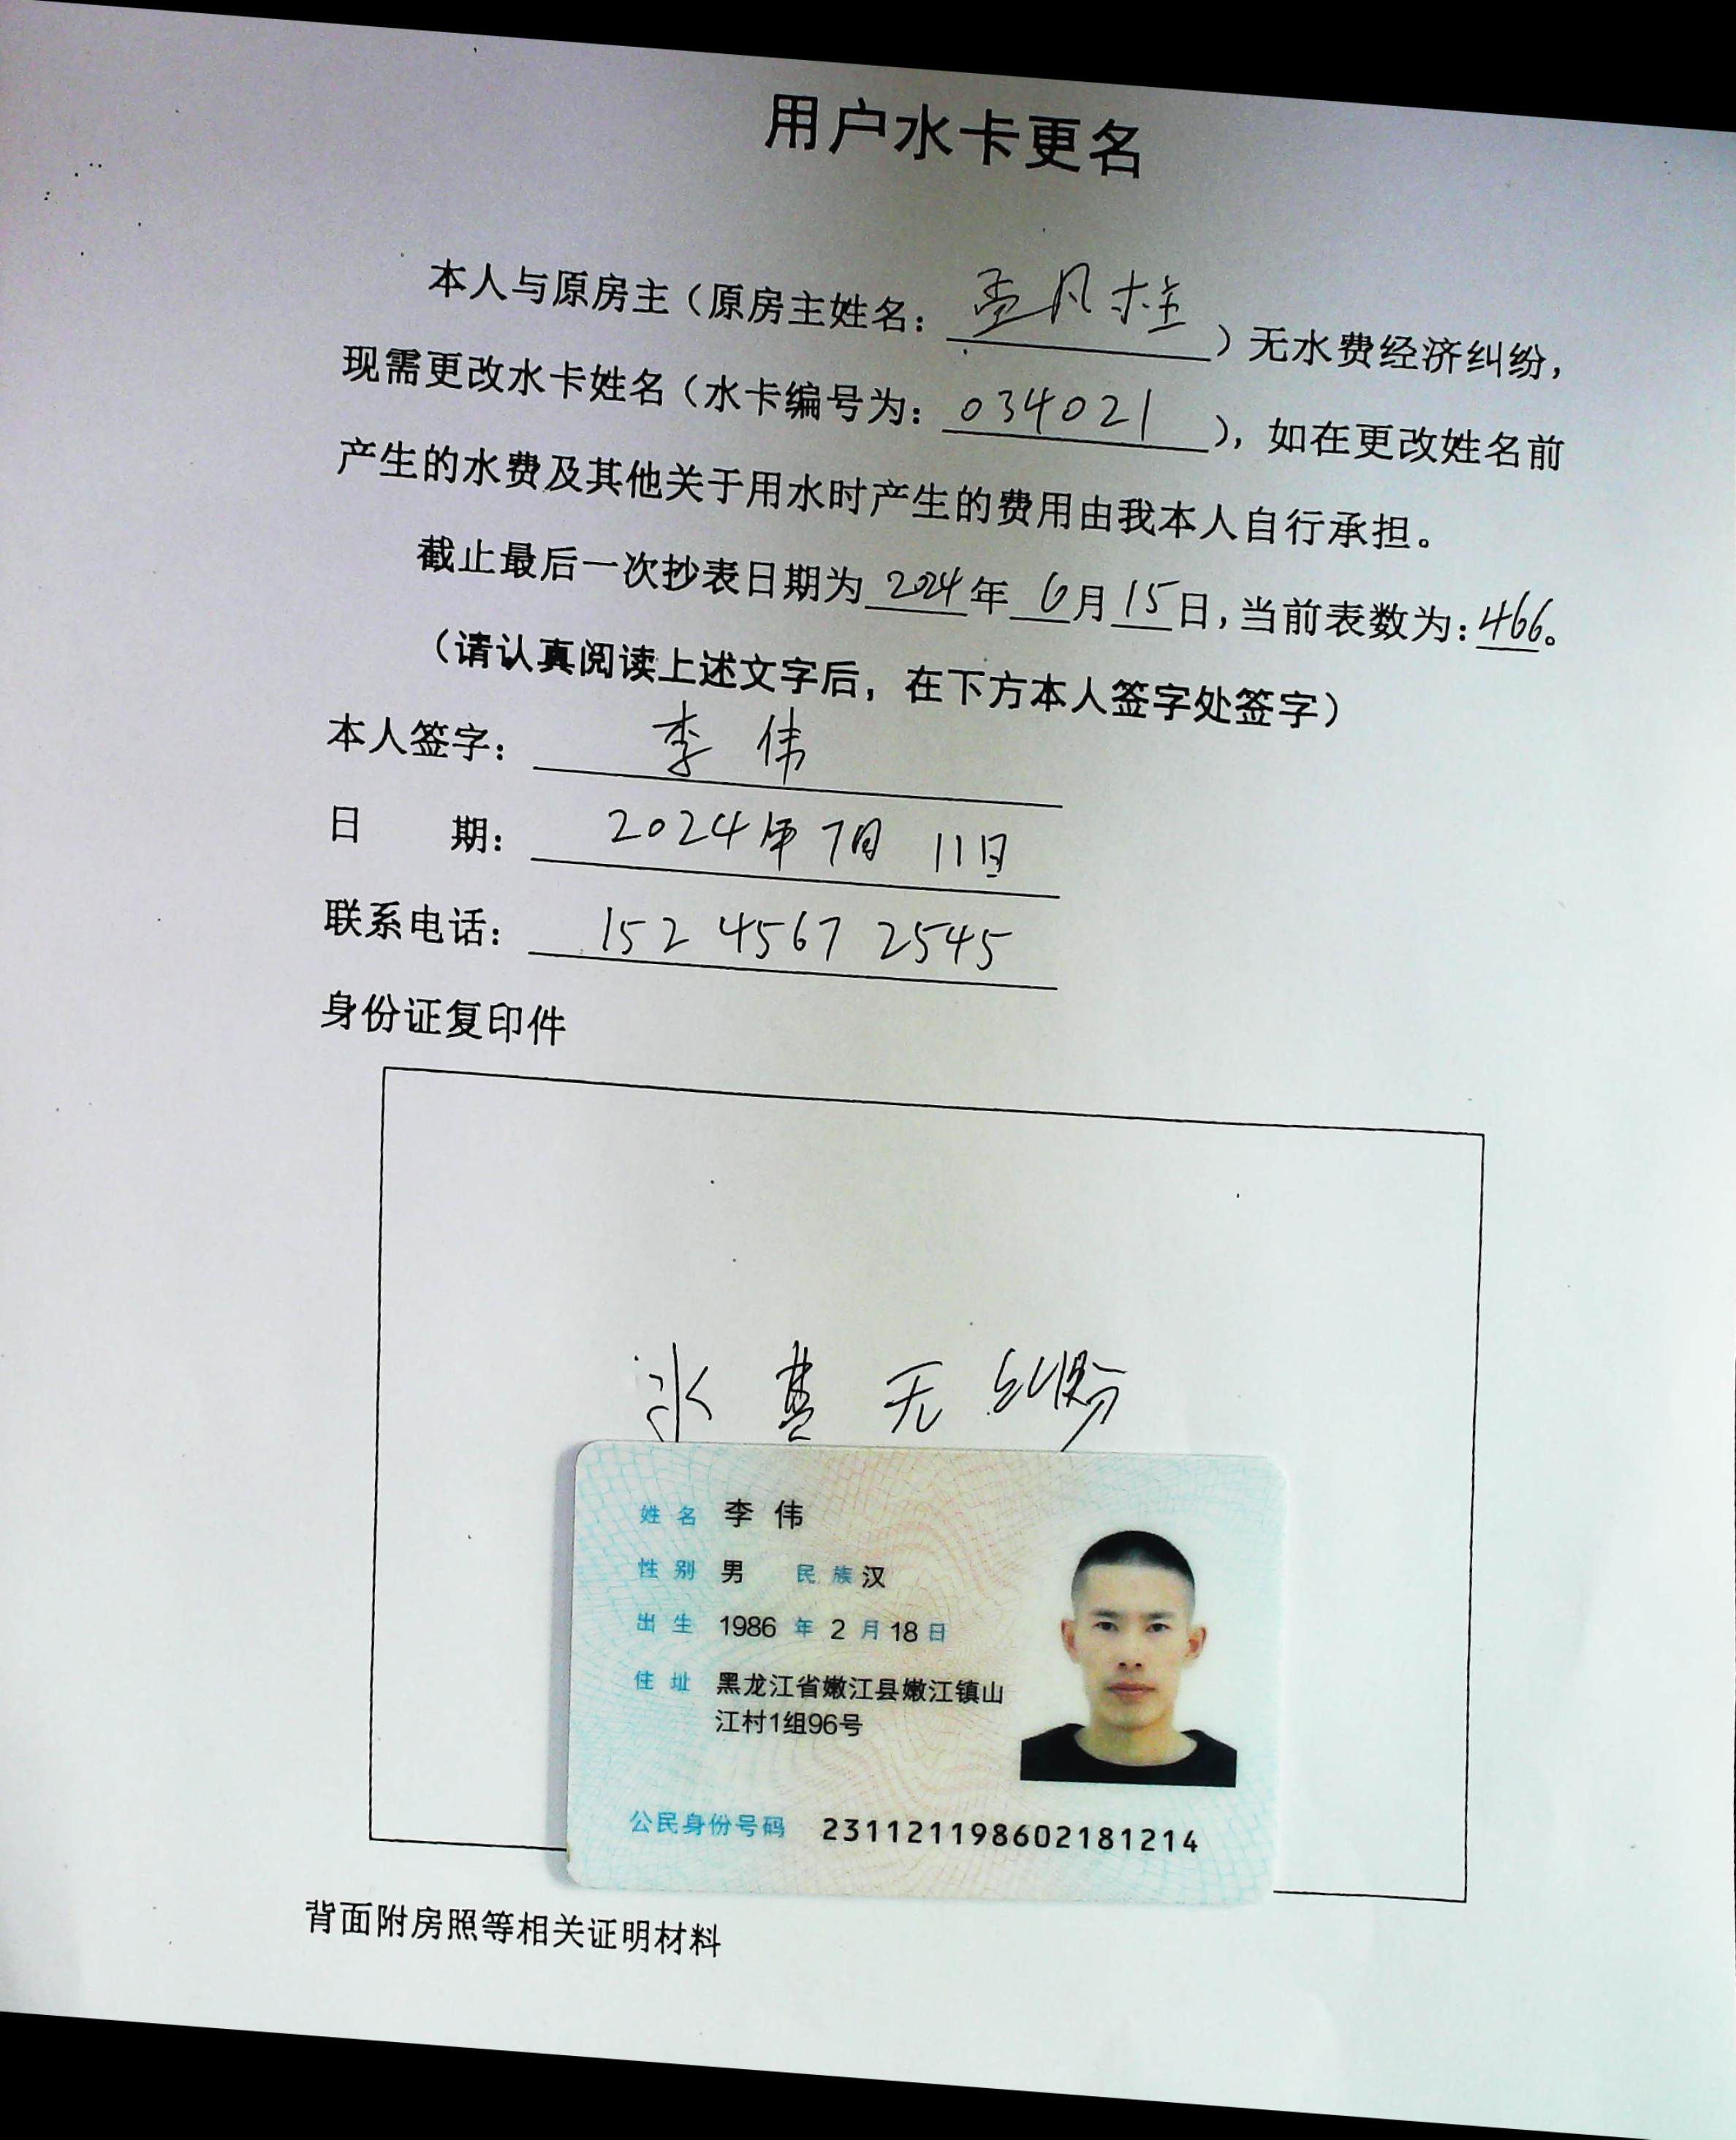 用户水卡更名
本人与原房主（原房主姓名：凡柱）无水费经济纠纷，
现需更改水卡姓名（水卡编号为：034021），如在更改姓名前
产生的水费及其他关于用水时产生的费用由我本人自行承担。
截止最后一次抄表日期为2024年6月15日，当前表数为：466。
（请认真阅读上述文字后，在下方本人签字处签字）
本人签字：李伟
日 期：2024年7月11日
联系电话：152 4567 2545
身份证复印件
水费无纠纷
姓名 李伟
性别 男 民族 汉
出生 1986 年 2 月 18 日
住址 黑龙江省嫩江县嫩江镇山
江村1组96号
公民身份号码 231121198602181214
背面附房照等相关证明材料